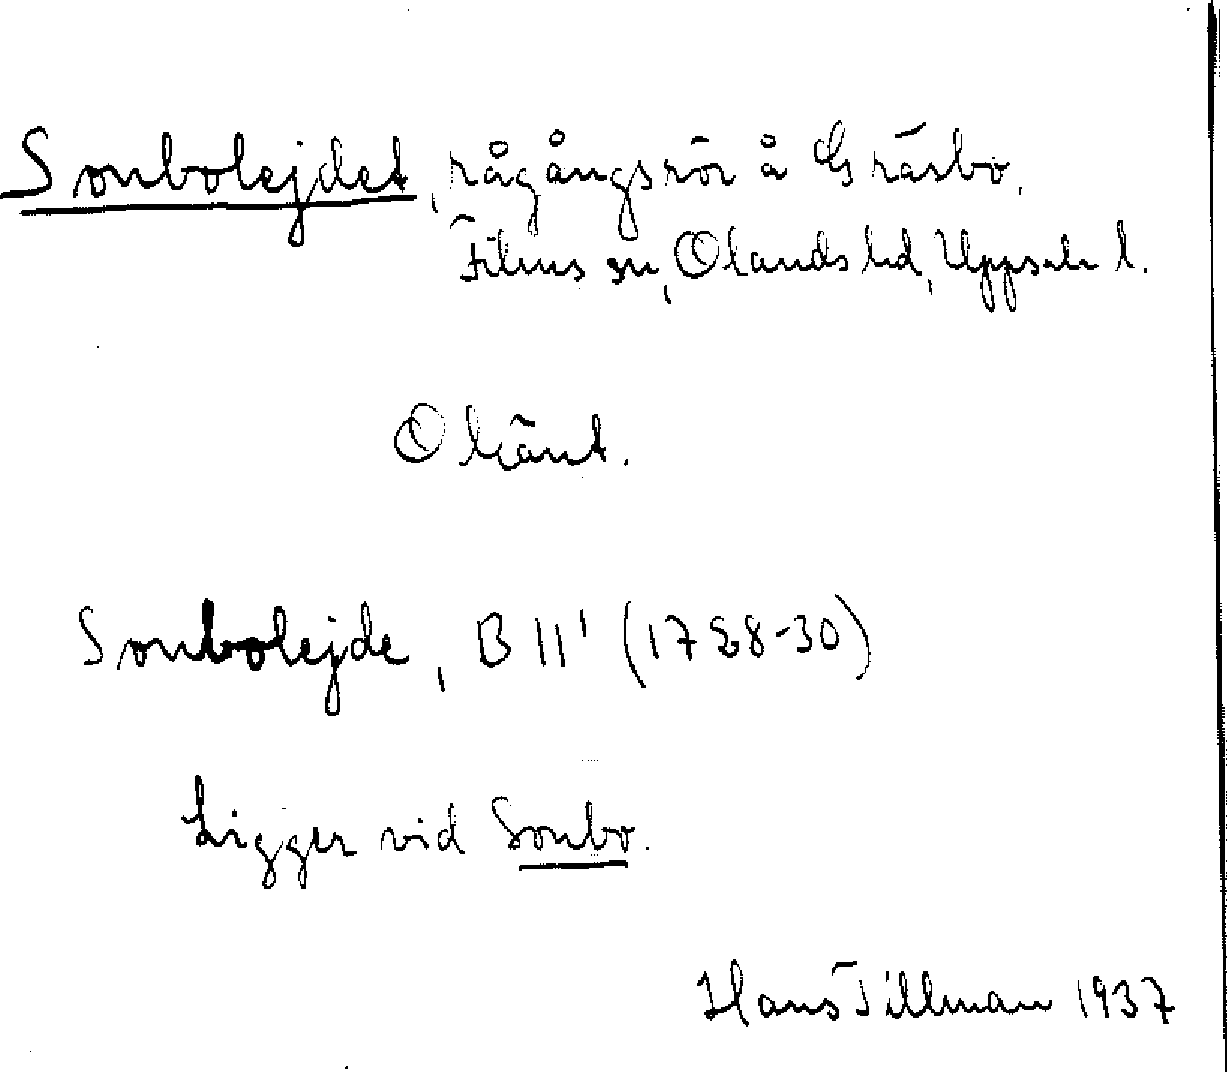 Sonbolejdet, rågångsrör å Gräsbo,
Films sn, Olands hd, Uppsala l.
Okänt.
Sonbolejde, B 11' (1728-30)
Ligger vid Sonbo.
Hans Tillman 1937